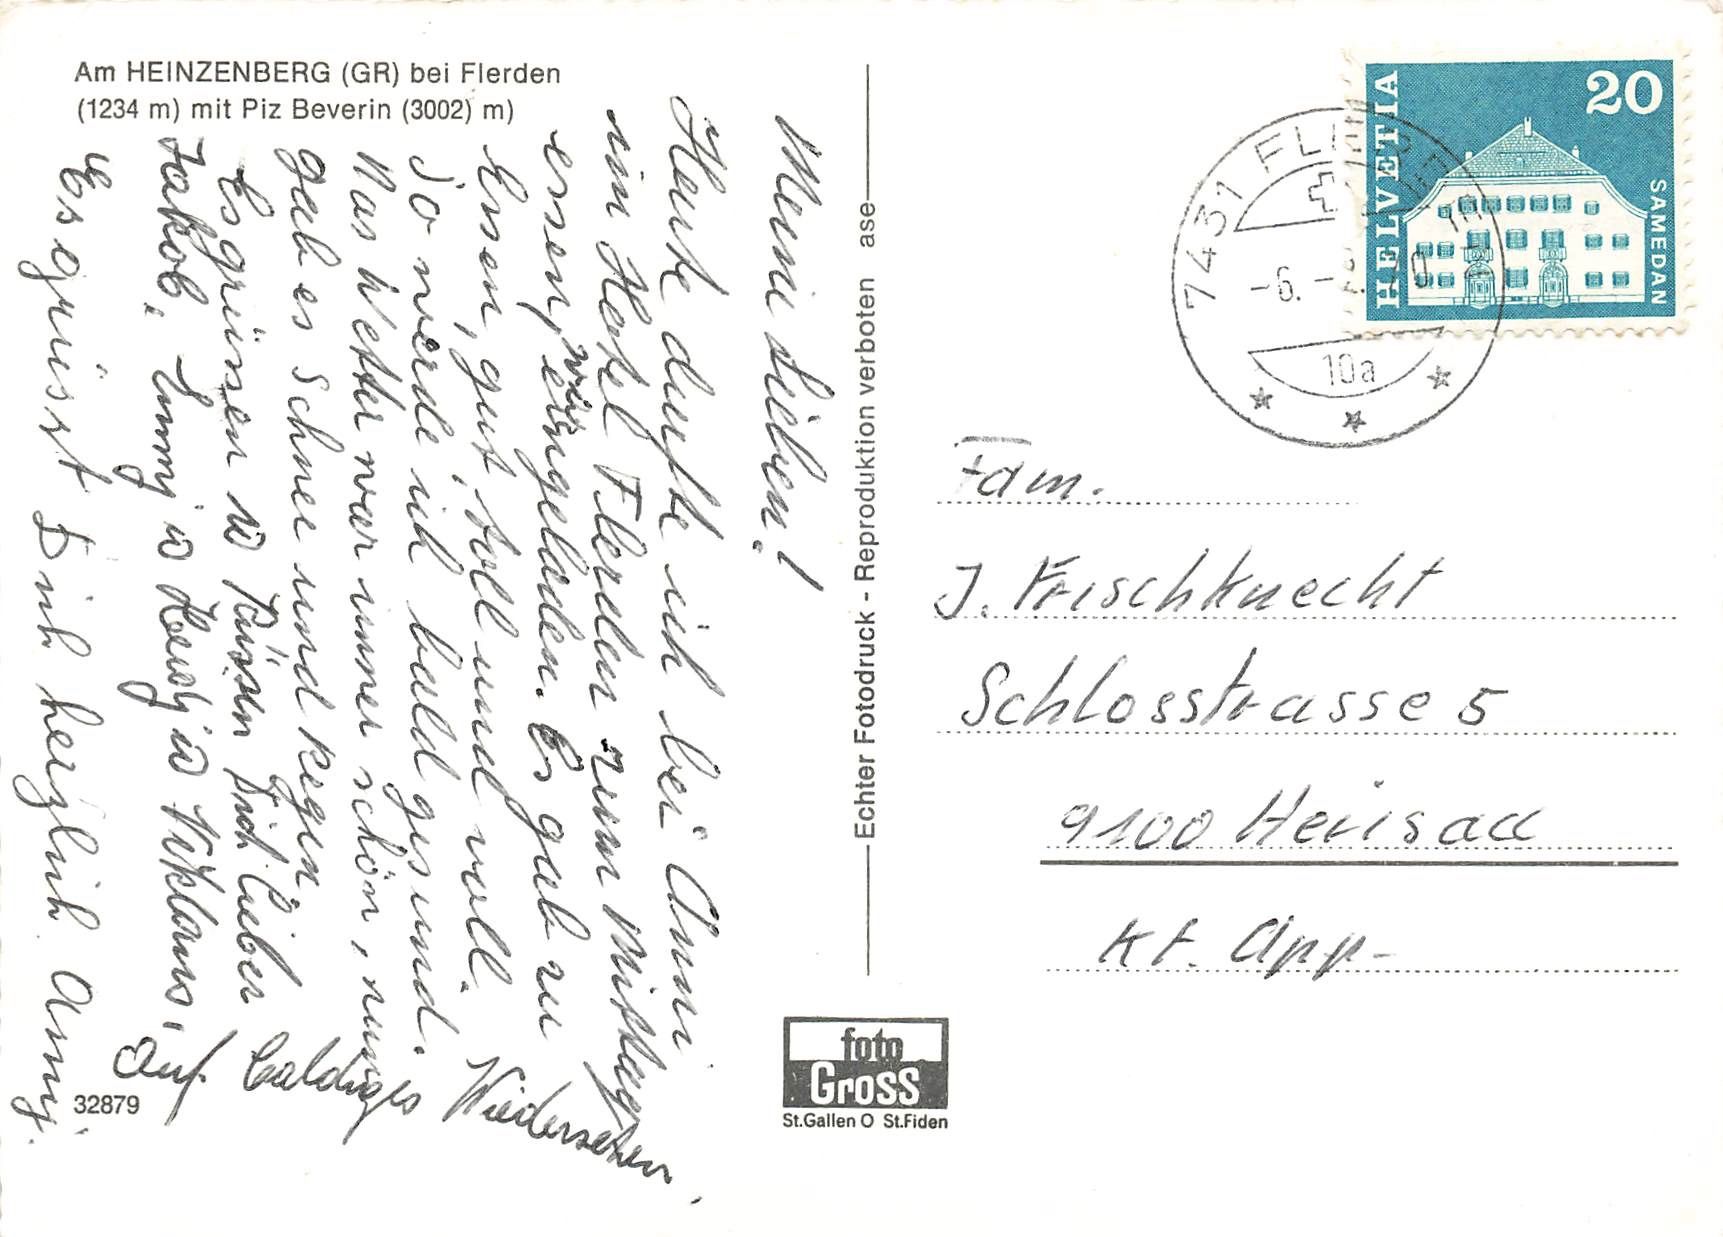 Am HEINZENBERG (GR) bei Flerden
(1234 m) mit Piz Beverin (3002) m)
Meine Lieben!
Heute durfte ich bei Anni
im Hotel Flerden zum Mittag
essen, eingeladen. Es gab zu
wär
Essen, gut, toll und voll.
So werde ich bald gesund.
Das Wetter war immer schön, nur
gab es Schnee und Regen
Es grüssen u Dich lieber
Jakob, Emmy u u Niklaus,
Es grüsst Dich herzlich Anny.
Auf baldiges Wiedersehen,
32879
Echter Fotodruck - Reproduktion verboten ase
foto
Gross
St.Gallen O St.Fiden
HELVETIA
20
SAMEDAN
7431 FLERDEN
-6.
10a
Fam.
J. Frischknecht
Schlosstrasse 5
9100 Herisau
Kt. App-